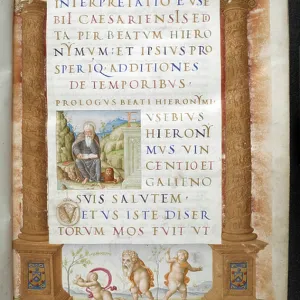 INTERPRETATIO EVSE
BII CAESARIENSIS ED
TA PER BEATVM HIERO
NYMVM: ET IPSIVS PRO
SPERIQ· ADDITIONES
DE TEMPORIBVS.
PROLOGVS BEATI HIERONYMI
EVSEBIVS
HIERONY
MVS VIN
CENTIO ET
GALIENO
SVIS SALVTEM.
VETVS ISTE DISER
TORVM MOS FVIT VT